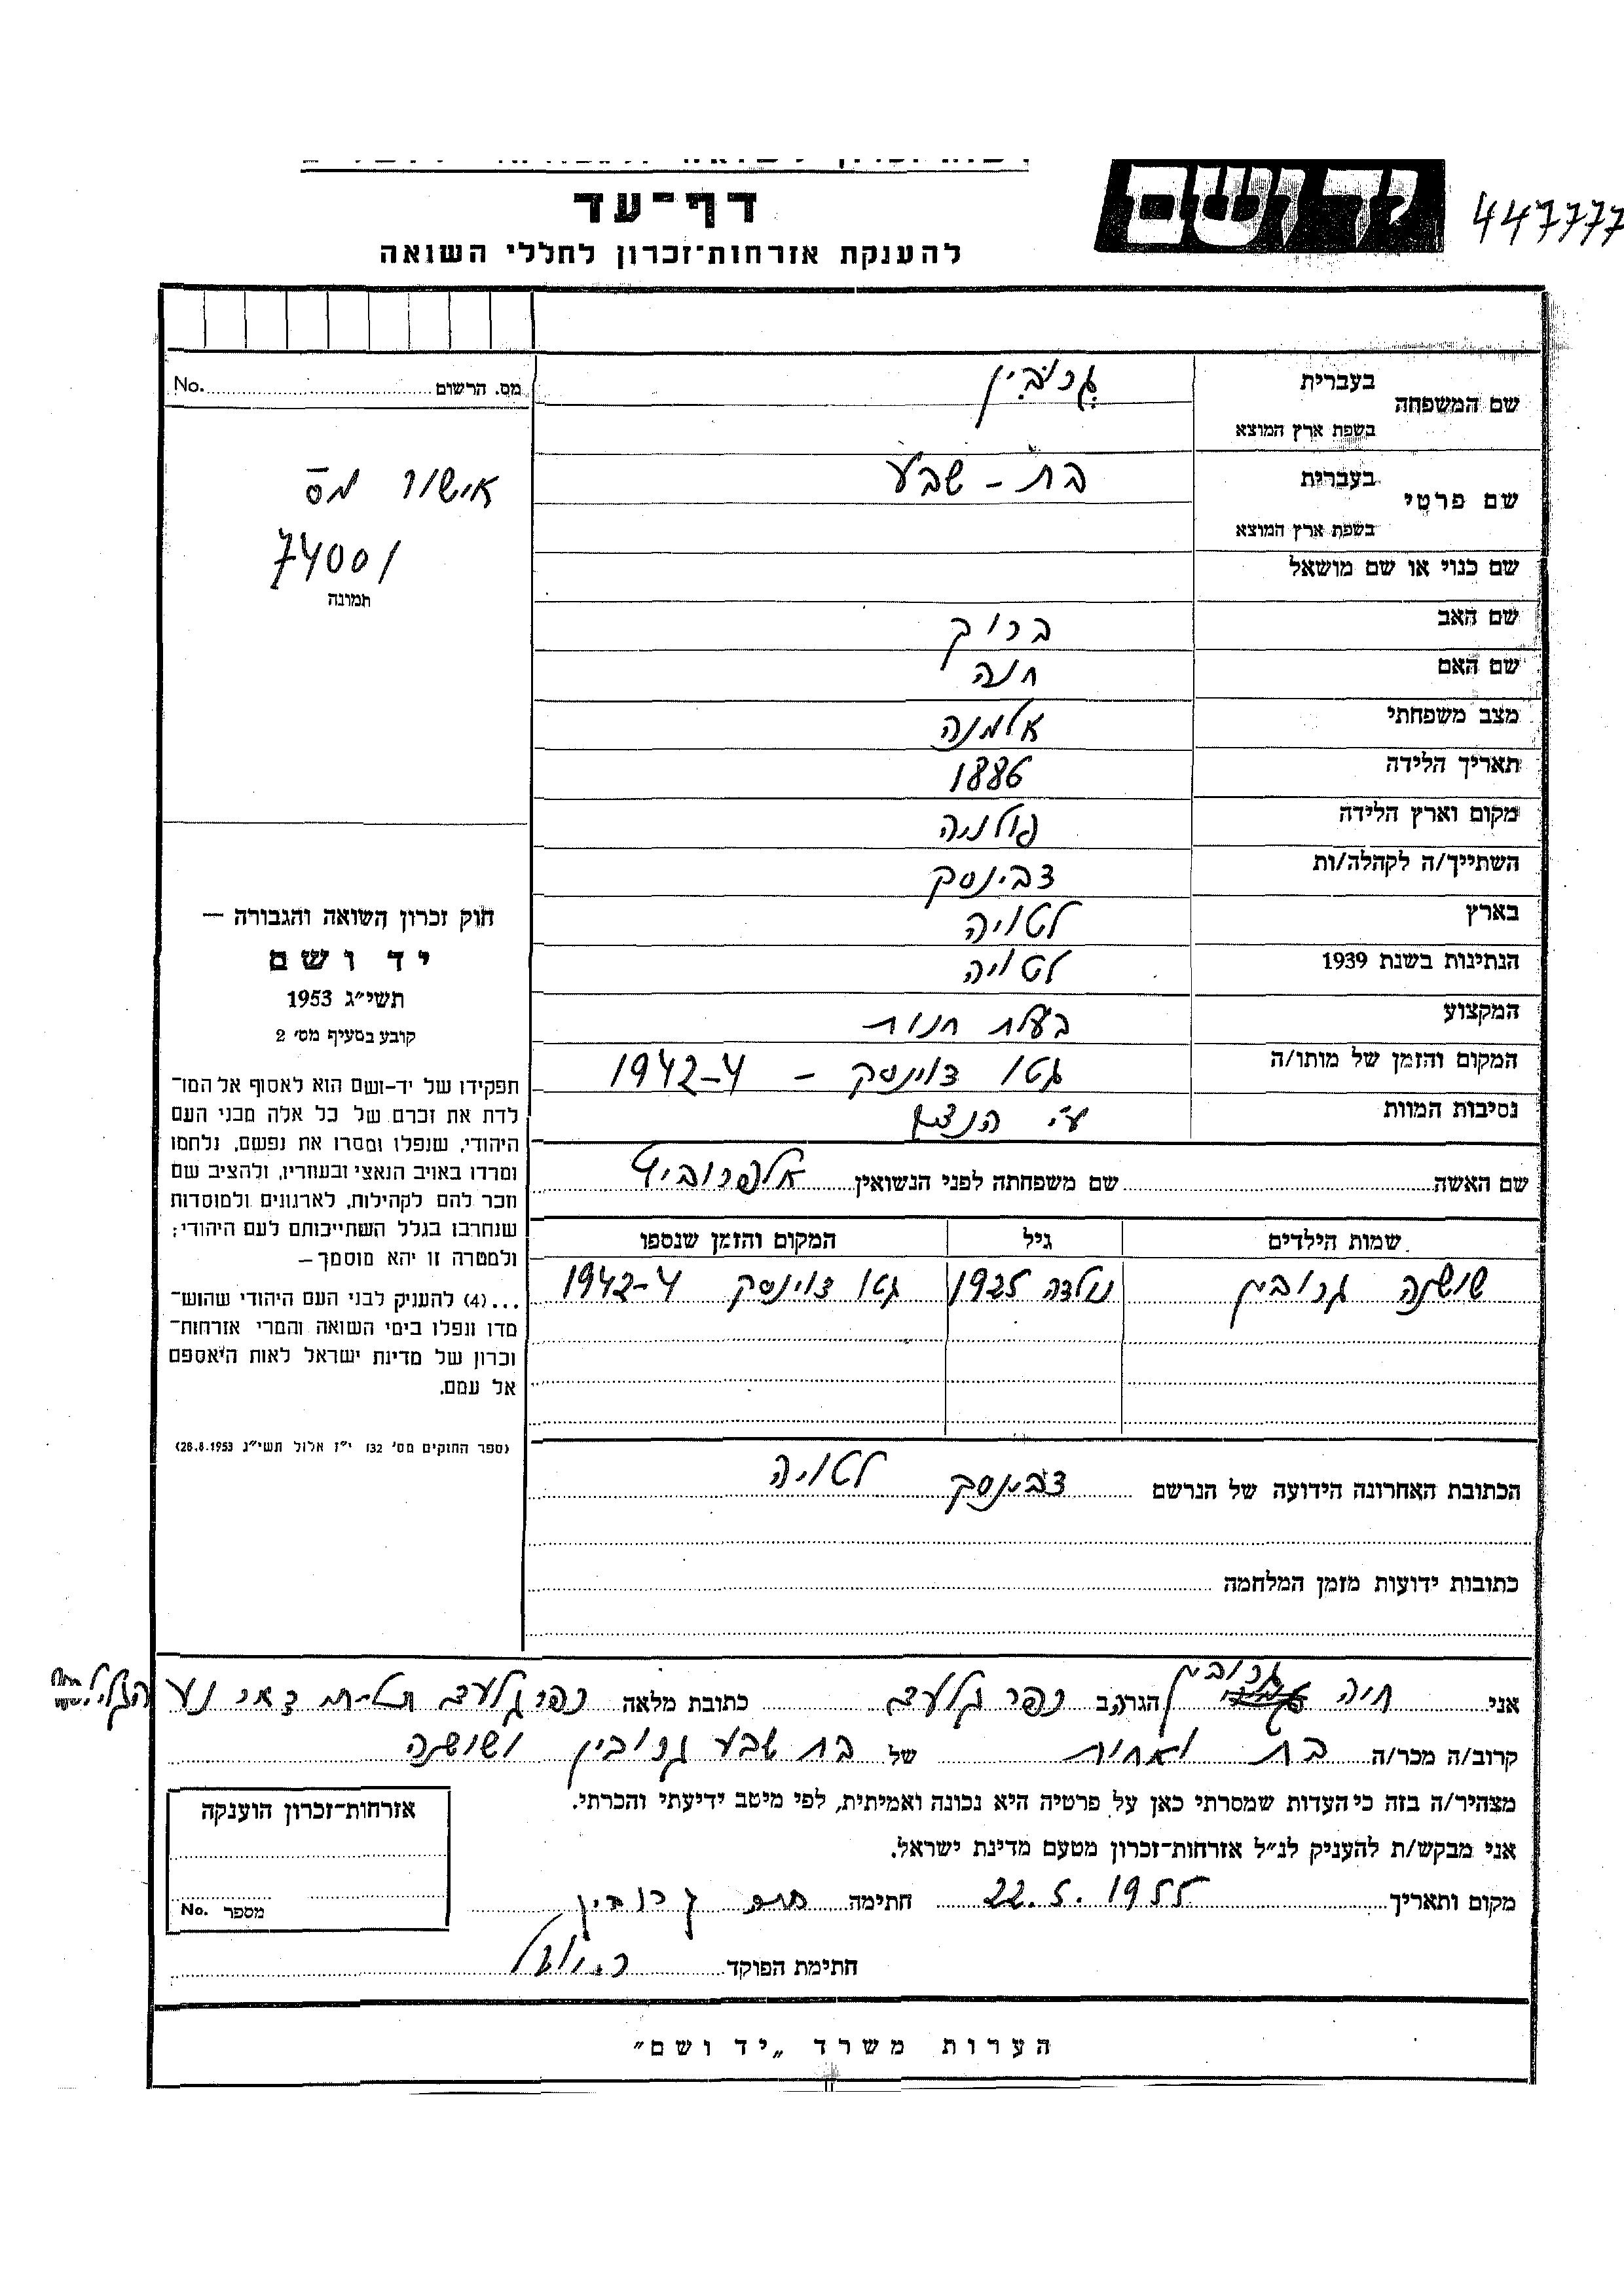 יד ושם
447777
דף־עד
להענקת אזרחות־זכרון לחללי השואה
מס. הרשום No.
אישור מס
74001
תמונה
שם המשפחה בעברית גרובין
בשפת ארץ המוצא
שם פרטי בעברית בת - שבע
בשפת ארץ המוצא
שם כנוי או שם מושאל
שם האב ברוך
שם האם חנה
מצב משפחתי אלמנה
תאריך הלידה 1886
מקום וארץ הלידה פולניה
השתייך/ה לקהלה/ות דבינסק
בארץ לטויה
הנתינות בשנת 1939 לטויה
המקצוע בעלת חנות
המקום והזמן של מותו/ה גטו דוינסק - 1942-4
נסיבות המוות ע"י
שם האשה שם משפחתה לפני הנשואין
שמות הילדים גיל המקום והזמן שנספו
שושנה גרובין נולדה 1925 גטו דוינסק 1942-4
הכתובת האחרונה הידועה של הנרשם דבינסק לטויה
כתובות ידועות מזמן המלחמה
חוק זכרון השואה והגבורה —
יד ושם
תשי״ג 1953
קובע בסעיף מס׳ 2
תפקידו של יד-ושם הוא לאסוף אל המו־
לדת את זכרם של כל אלה מבני העם
היהודי, שנפלו ומסרו את נפשם, נלחמו
ומרדו באויב הנאצי ובעוזריו, ולהציב שם
וזכר להם לקהילות, לארגונים ולמוסדות
שנחרבו בגלל השתייכותם לעם היהודי;
ולמטרה זו יהא מוסמך —
...(4) להעניק לבני העם היהודי שהוש־
מדו ונפלו בימי השואה והמרי אזרחות־
זכרון של מדינת ישראל לאות היאספם
אל עמם.
(ספר החוקים מס׳ 132 י״ז אלול תשי״ג 28.8.1953)
אני חיה גרובין הגר/ה ב כפר גלעדי כתובת מלאה כפר גלעדי
קרוב/ה מכר/ה בת ואחות של בת שבע גרובין ושושנה
מצהיר/ה בזה כי העדות שמסרתי כאן על פרטיה היא נכונה ואמיתית, לפי מיטב ידיעתי והכרתי.
אני מבקש/ת להעניק לנ״ל אזרחות־זכרון מטעם מדינת ישראל.
מקום ותאריך 22.5.1955 חתימה חיה גרובין
חתימת הפוקד
אזרחות־זכרון הוענקה
מספר No.
הערות משרד „יד ושם״